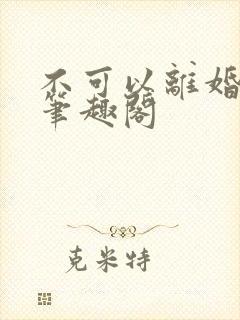 不可以離婚
筆趣閣
克米特